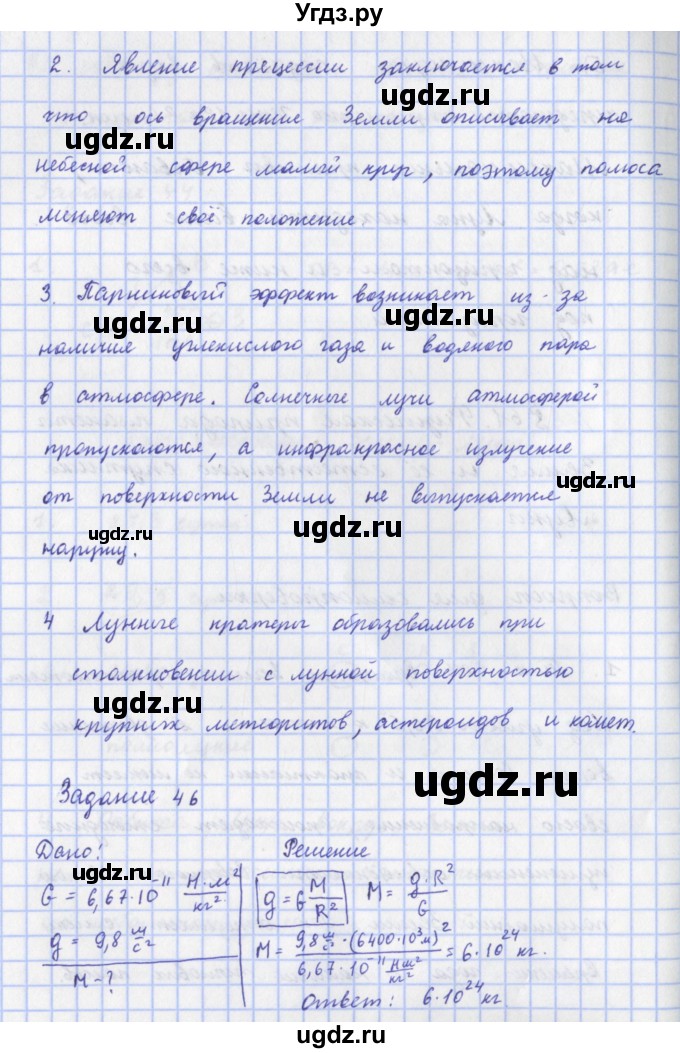 Угдз.ру
2. Явление прецессии заключается в том
что ось вращение Земли описывает на
ugdz.ru
ugdz.ru
небесной сфере малый круг, поэтому полюса
меняют своё положение
ugdz.ru
3. Парниковый эффект возникает из-за
ugdz.ru
ugdz.ru
наличия углекислого газа и водяного пара
в атмосфере. Солнечные лучи атмосферой
пропускаются, а инфракрасное излучение
ugdz.ru
от поверхности Земли не выпускается
ugdz.ru
ugdz.ru
наружу.
4 Лунные кратеры образовались при
ugdz.ru
столкновении с лунной поверхностью
ugdz.ru
крупных метеоритов, астероидов и комет.
ugdz.ru
Задание 46
Дано: Решение
G = 6,67·10⁻¹¹ Н·м²/кг² g = G M/R² M = g·R²/G
ugdz.ru
g = 9,8 м/с² M = 9,8 м/с²·(6400·10³м)²/6,67·10⁻¹¹ Нм²/кг² = 6·10²⁴ кг.
ugdz.ru
ugdz.ru
M - ?
Ответ: 6·10²⁴ кг.
ugdz.ru